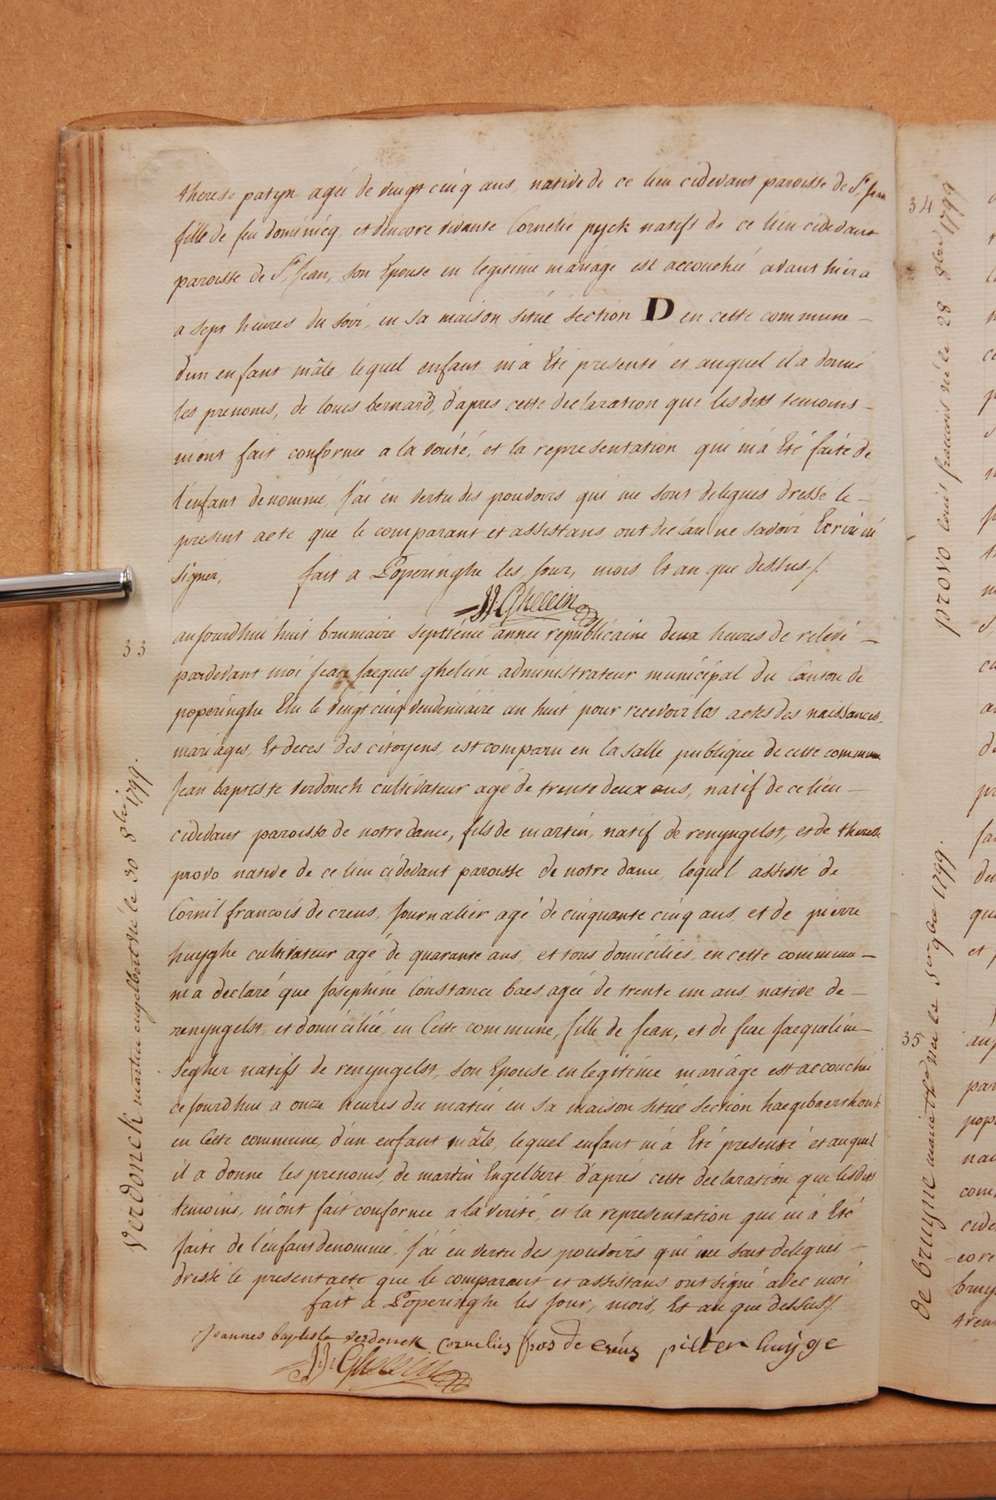 therese patyn agée de vingt cinq ans, native de ce lieu cidevant paroisse de St Jean
fille de feu dominicq, et d'encore vivante Cornelie pyck natifs de ce lieu cidevant
paroisse de St Jean, son Epouse en legitime mariage est accouchée avant hier a
a sept heures du soir, en sa maison située section D en cette commune –
d'un enfant mâle lequel enfant m'a Eté presenté et auquel il a donné
les prenoms, de louis bernard, d'apres cette declaration que les dits temoins –
m'ont fait conforme a la verité, et la representation qui m'a Eté faite de
l'enfant denommé, J'ai en vertu des pouvoirs qui me sont delegués dressé le –
present acte que le comparant et assistans ont declaré ne sadvoir Ecrire ni
signer, fait a Poperinghe les Jour, mois Et an que dessus /.
JJ Ghelein
33
aujourdhui huit brumaire septieme année republicaine deux heures de relevé –
pardevant moi Jean Jacques ghelein administrateur municipal du Canton de
poperinghe Elu le vingt cinq vendemiaire an huit pour recevoir les actes des naissances,
mariages, Et deces des citoyens, est comparu en la salle publique de cette commune
Jean baptiste verdonck cultivateur agé de trente deux ans, natif de ce lieu –
cidevant paroisse de notre dame, fils de martin, natif de renyngelst, et de therese
provo native de ce lieu cidevant paroisse de notre dame, lequel assisté de
Cornil francois de creus, Journalier agé de cinquante cinq ans, et de pierre
huyghe cultivateur agé de quarante ans, et tous domiciliés, en cette commune –
m'a declaré que Josephine Constance baes agée de trente un ans, native de –
renyngelst, et domiciliée, en Cette commune, fille de Jean, et de feue Jacqueline –
Segher natifs de renyngelst, son Epouse en legitime mariage est accouchée
ce Jourdhui a onze heures du matin en sa maison située section haeghebaerthoek
en Cette commune, d'un enfant mâle, lequel enfant m'a Eté presenté et auquel
il a donné les prenoms, de martin Engelbert d'apres cette declaration que lesdits
temoins, m'ont fait conforme a la verité, et la representation qui m'a Eté
faite de l'enfant denommé, J'ai en vertu des pouvoirs qui me sont delegués –
dressé le present acte que le comparant et assistans ont signé avec moi
fait a Poperinghe les Jour, mois, Et an que dessus /.
Joannes baptista verdonck Cornelius fros de creus pieter huyge
JJ Ghelein
Verdonck martin engelbert né le 30 8bre 1799.
34
provo louis francois né le 28 1799
35
de bruyne marie
1799.